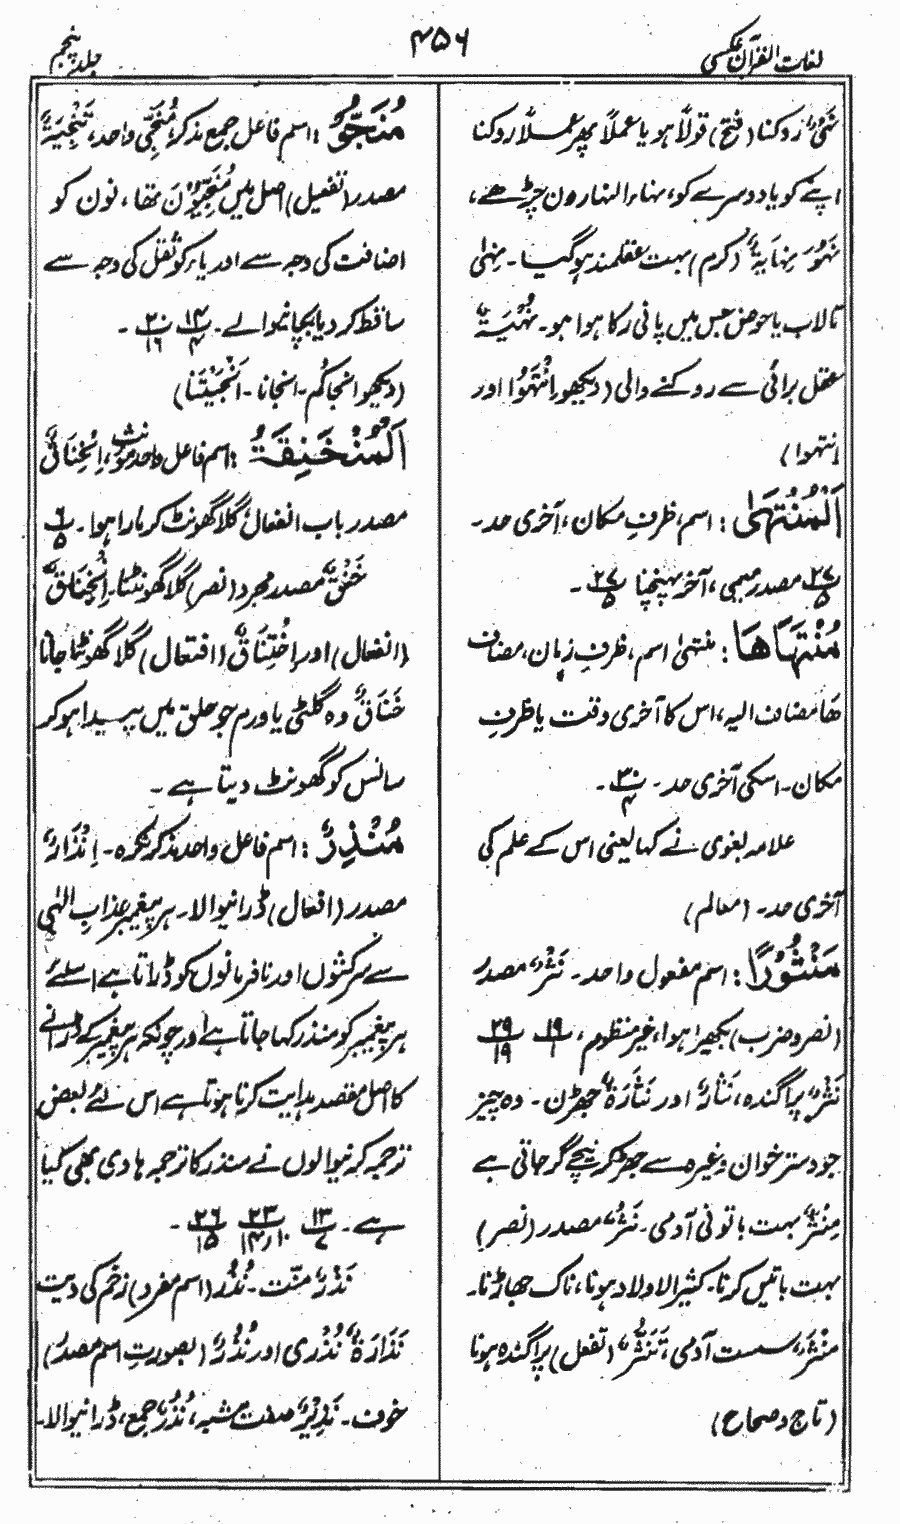 لغات القرآن عکسی
۴۵۶
جلد پنجم
شَیْءٍ روکنا (فتح) قولاً ہو یا عملاً پھر عملاً روکنا
اپنے کو یا دوسرے کو، نہاء النہار دن چڑھے،
نَہُوَ نِہَایَۃً (کرم) بہت عقلمند ہوگیا۔ نِہیٰ
تالاب یا حوض جس میں پانی رکا ہوا ہو۔ نُہْیَۃٌ
عقل برائی سے روکنے والی (دیکھو اِنْتَہُوْا اور
انتہوا)
اَلْمُنْتَہٰی: اسم، ظرفِ مکان، آخری حد۔
۲۷/۵ مصدر میمی، آخر پہنچنا ۲۷/۵ ۔
مُنْتَہَاہَا: منتہیٰ اسم، ظرفِ زمان، مضاف
ھَا مضاف الیہ، اس کا آخری وقت یا ظرفِ
مکان۔ اسکی آخری حد۔ ۳۰/۴ ۔
علامہ بغوی نے کہا یعنی اس کے علم کی
آخری حد۔ (معالم)
مَنْثُوْرًا: اسم مفعول واحد۔ نَثْرٌ مصدر
(نصر و ضرب) بکھیرا ہوا، غیر منظوم، ۱۹/۱ ۲۹/۱۹
نَثْرٌ پراگندہ، نَثَارٌ اور نُثَارَۃٌ جھڑن۔ وہ چیز
جو دسترخوان وغیرہ سے جھڑ کر نیچے گر جاتی ہے
مِنْثَرٌ بہت باتونی آدمی۔ نَثْرٌ مصدر (نصر)
بہت باتیں کرنا۔ کثیر الاولاد ہونا، ناک جھاڑنا۔
مُنْثَرٌ سست آدمی، تَنَثُّرٌ (تفعل) پراگندہ ہونا
(تاج و صحاح)
مُنَجُّوْ: اسم فاعل جمع مذکر، مُنَجِّی واحد، تَنْجِیَۃٌ
مصدر (تفعیل) اصل میں مُنَجِّیُوْنَ تھا، نون کو
اضافت کی وجہ سے اور یاء کو ثقل کی وجہ سے
ساقط کر دیا بچانیوالے۔ ۱۴/۴ ۲۰/۱۶ ۔
(دیکھو انجاکُم۔ انجانا۔ اَنْجَیْتَنَا)
اَلْمُنْخَنِقَۃُ: اسم فاعل واحد مونث، اِنْخِنَاقٌ
مصدر باب انفعال گلا گھونٹ کر مارا ہوا۔ ۶/۵
خَنْقٌ مصدر مجرد (نصر) گلا گھونٹنا۔ اِنْخِنَاقٌ
(انفعال) اور اِخْتِنَاقٌ (افتعال) گلا گھونٹا جانا
خُنَاقٌ وہ گلٹی یا ورم جو حلق میں پیدا ہو کر
سانس کو گھونٹ دیتا ہے۔
مُنْذِرٌ: اسم فاعل واحد مذکر نکرہ۔ اِنْذَارٌ
مصدر (افعال) ڈرانیوالا۔ ہر پیغمبر عذابِ الٰہی
سے سرکشوں اور نافرمانوں کو ڈراتا ہے اسلئے
ہر پیغمبر کو منذر کہا جاتا ہے اور چونکہ ہر پیغمبر کے ڈرانے
کا اصل مقصد ہدایت کرنا ہوتا ہے اس لئے بعض
ترجمہ کرنیوالوں نے منذر کا ترجمہ ہادی بھی کیا
ہے۔ ۱۳/۷ ۲۳/۱۰ر۱۴ ۲۶/۱۵ ۔
نَذْرٌ منّت۔ نُذُرٌ (اسم مفرد) زخم کی دیت
نَذَارَۃٌ نُذْرٰی اور نُذُرٌ (بصورتِ اسم مصدر)
خوف۔ نَذِیْرٌ صفت مشبہ، نُذُرٌ جمع، ڈرانیوالا۔